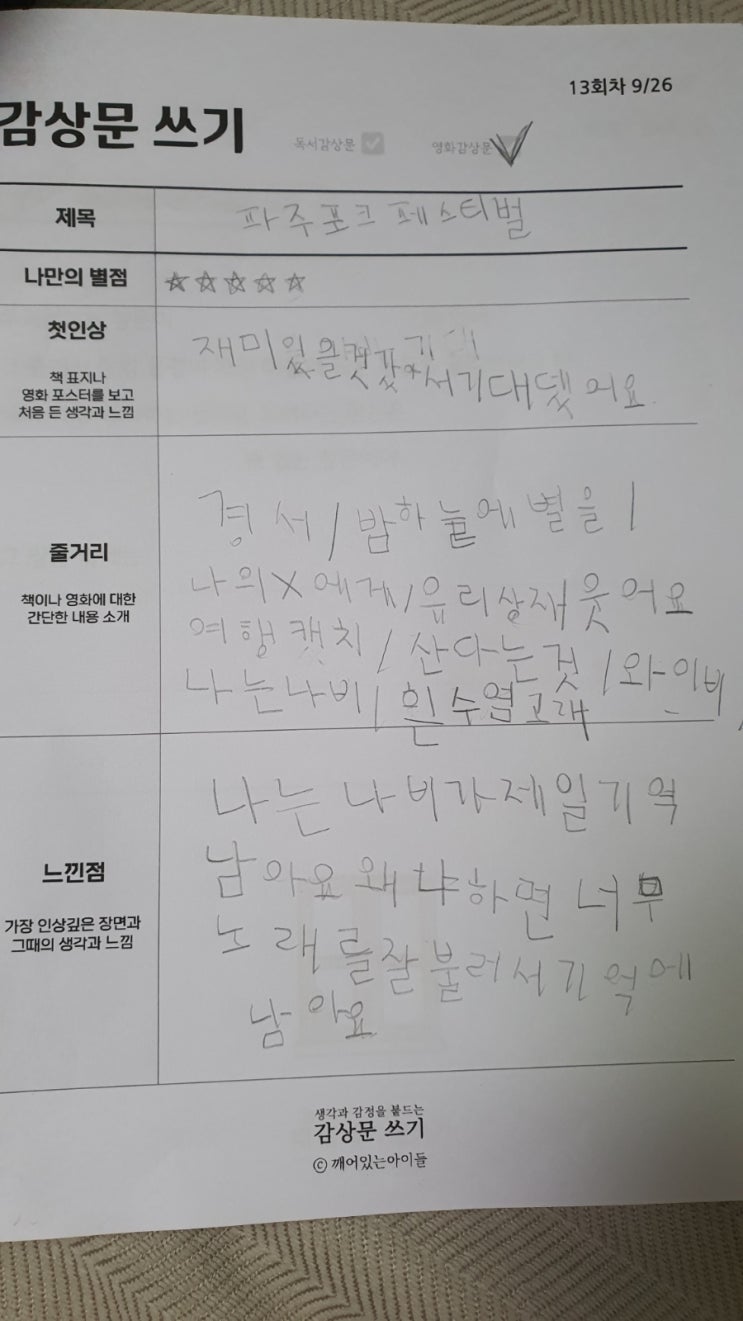 13회차 9/26
감상문 쓰기
독서감상문 영화감상문
제목
파주포크페스티벌
나만의 별점
☆☆☆☆☆
첫인상
책 표지나
영화 포스터를 보고
처음 든 생각과 느낌
재미있을겟갔아
서기대뎄어요
줄거리
책이나 영화에 대한
간단한 내용 소개
경서/밤하늘에별을/
나의X에게/유리상재웃어요
여행캣치/산다는것/와인비
나는나비/흰수염고래
느낀점
가장 인상깊은 장면과
그때의 생각과 느낌
나는나비가제일기억
남아요왜냐하면너무
노래를잘불러서기억에
남아요
생각과 감정을 붙드는
감상문 쓰기
ⓒ 깨어있는아이들